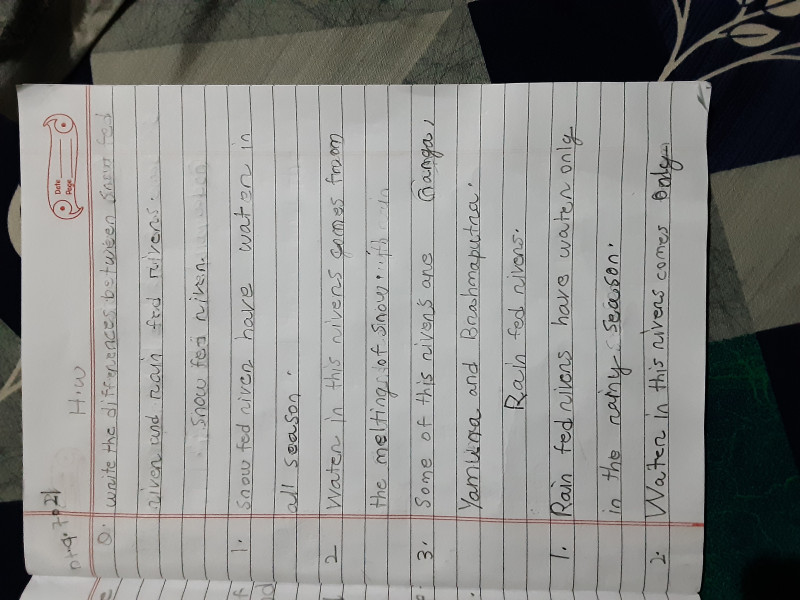 Date
Page
H.W
Q. write the differences between snow fed
river and rain fed rivers.
Snow fed river.
1. snow fed river have water in
all season.
2 Water in this rivers comes from
the melting of snow.
3. Some of this rivers are Ganga,
Yamuna and Brahmaputra.
Rain fed rivers.
1. Rain fed rivers have water only
in the rainy season.
2. Water in this rivers comes only